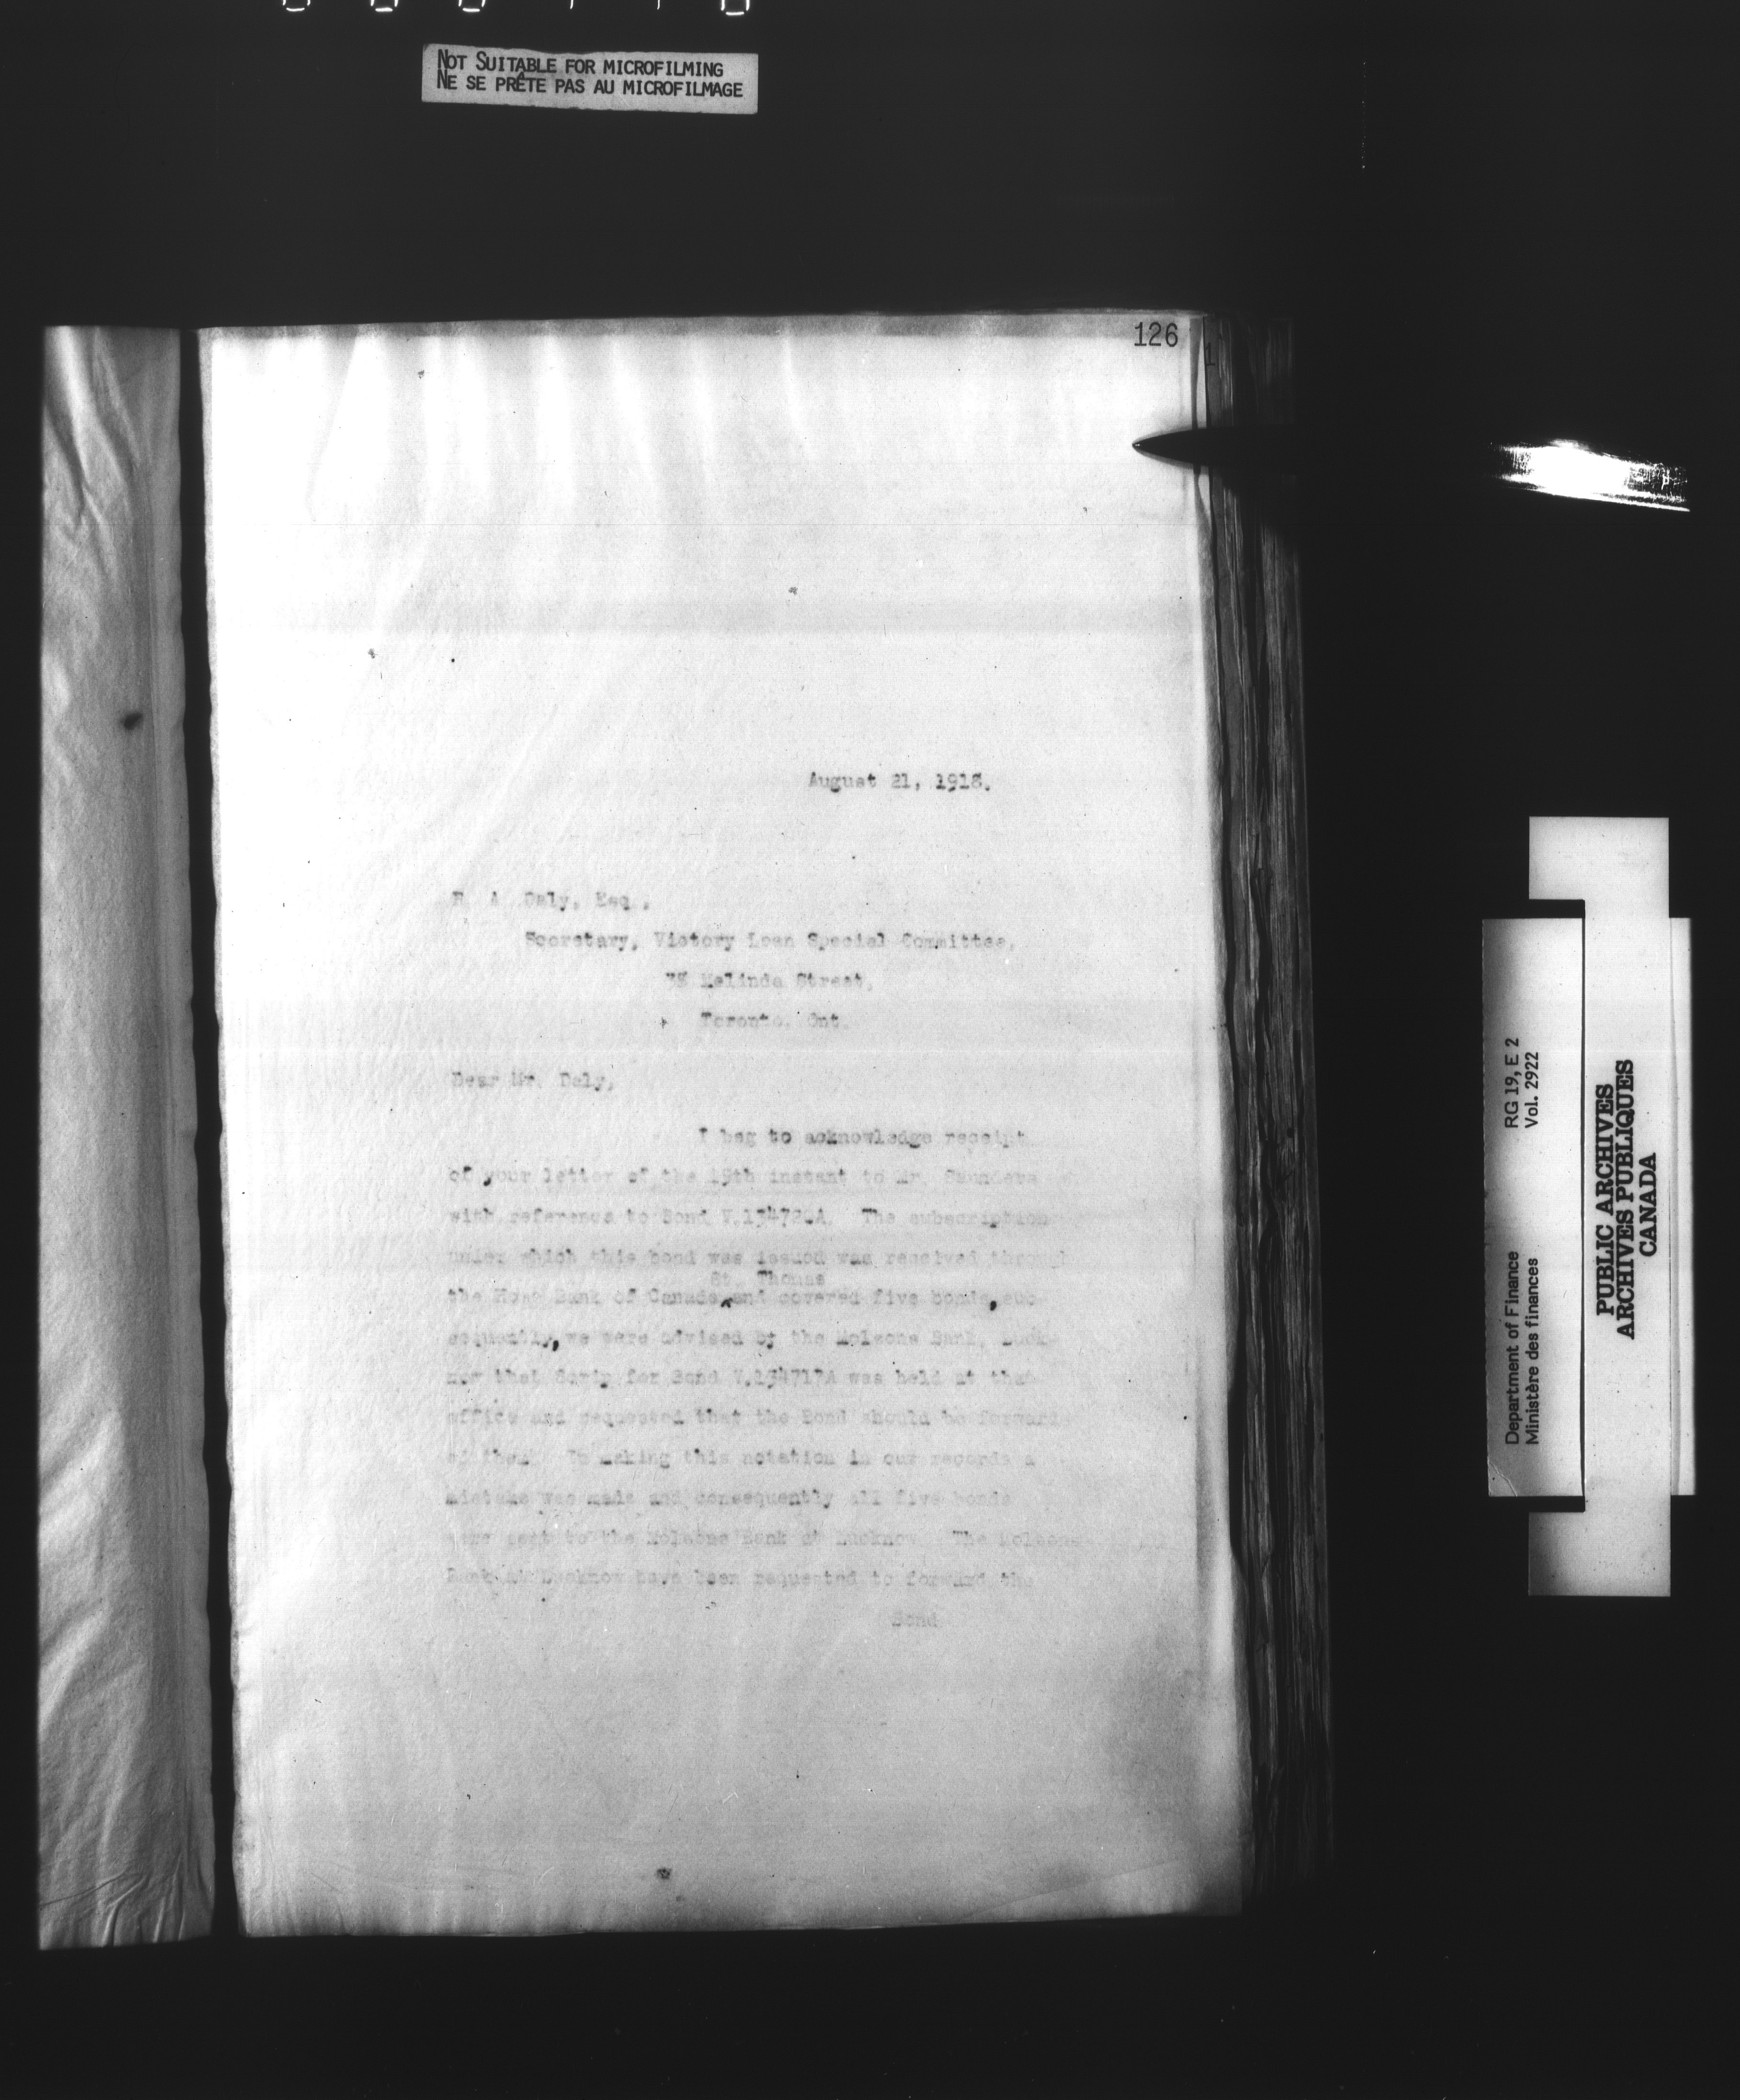 NOT SUITABLE FOR MICROFILMING
NE SE PRÊTE PAS AU MICROFILMAGE
126
August 21, 1918.
R. A. Daly, Esq.,
Secretary, Victory Loan Special Committee,
Melinda Street,
Toronto, Ont.
Dear Mr. Daly,
I beg to acknowledge receipt
of your letter of the 19th instant to Mr. Saunders
with reference to Bond The subscription
under which this bond was issued was received through
St. Thomas
the Home Bank of Canada and covered five bonds, sub-
sequently, we were advised by the Molsons Bank, Luck-
now that Scrip for Bond V.134717A was held at that
office and requested that the Bond should be forward-
ed them. In making this notation in our records a
mistake was made and consequently all five bonds
were sent to the Molsons Bank at Lucknow. The Molsons
Bank at Lucknow have been requested to forward the
Bond
Department of Finance RG 19, E 2
Ministère des finances Vol. 2922
PUBLIC ARCHIVES
ARCHIVES PUBLIQUES
CANADA